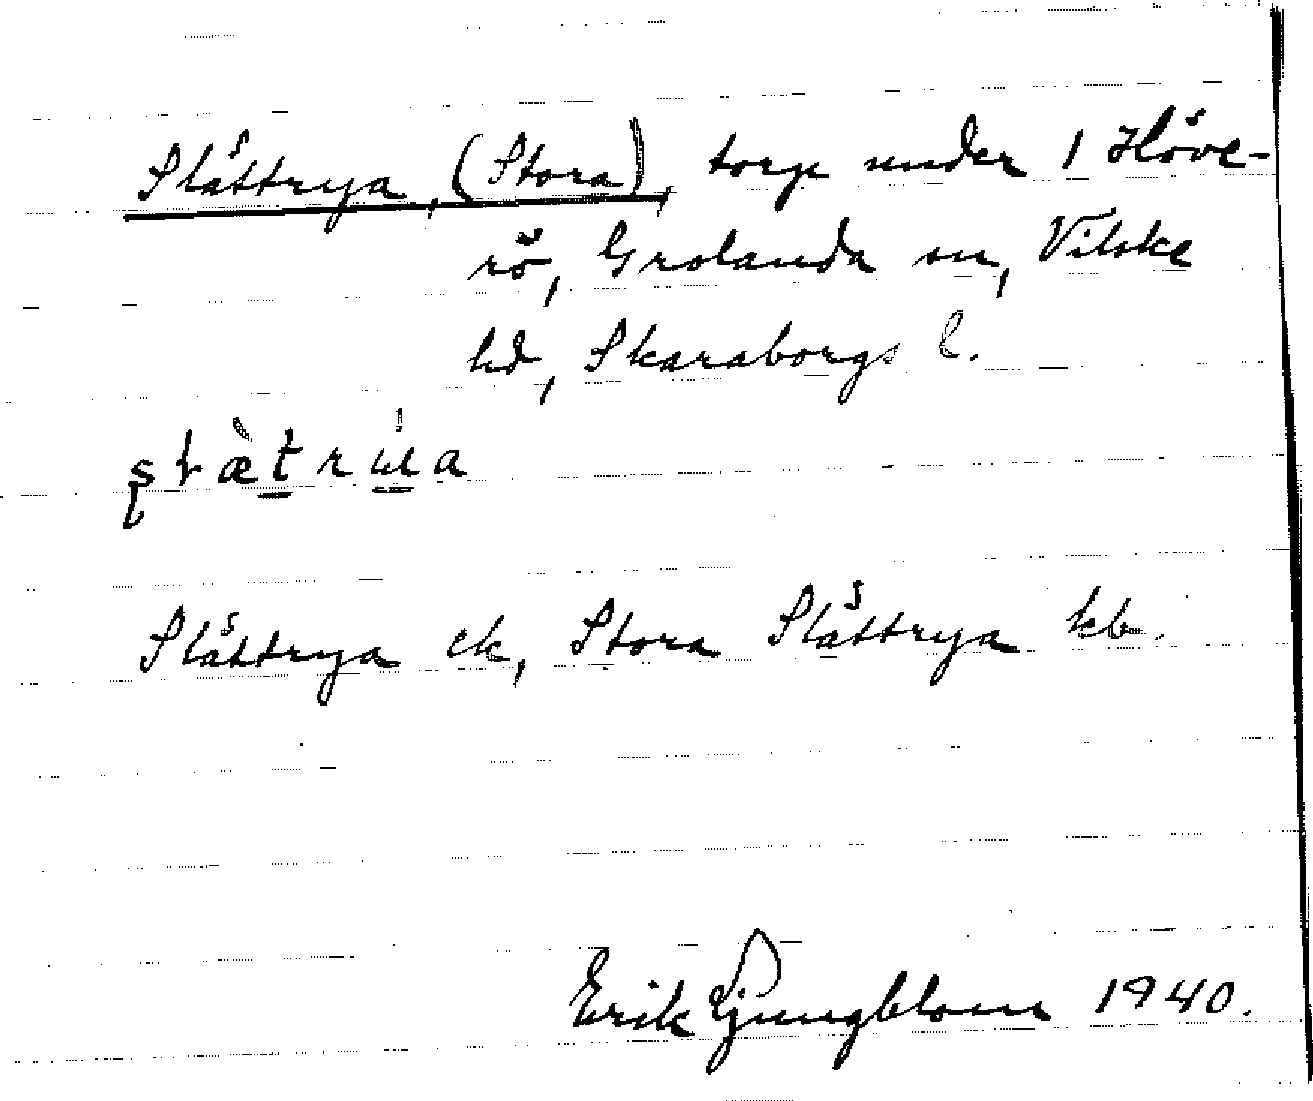 Slåttrya, (Stora), torp under 1 Höve-
rö, Grolanda sn, Vilske
hd, Skaraborgs l.
Slåttrya ek, Stora Slåttrya kb.
Erik Ljungblom 1940.